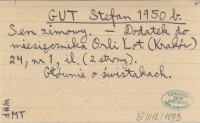 GUT Stefan 1950 b.
Sen zimowy. – Dodatek do
miesięcznika Orli Lot (Kraków)
24, nr 1, il. (2 strony).
Głównie o świstakach.
WHP
MT